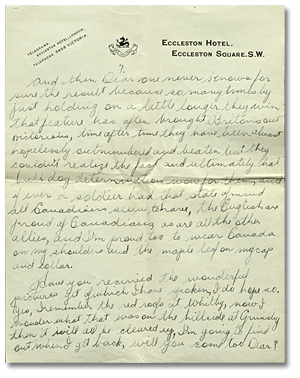 TELEGRAMS,
ECCLESTON HOTEL, LONDON.
TELEPHONE 3468 VICTORIA.
ECCLESTON HOTEL,
ECCLESTON SQUARE, S.W.
7.
And then Dear one never knows for
sure the result because so many times by
just holding on a little longer they win
that feature has often brought Britons out
victorious, time after time they have been almost
hopelessly outnumbered and beaten but they
couldn't realize the fact and ultimately that
bull dog determination won for them, and
if ever a soldier had that state of mind
all Canadians seem to have, the English are
proud of Canadians, so are all the other
allies, and I'm proud too to wear Canada
on my shoulders and the maple leaf on my cap
and collar.
Have you received the wonderful
pictures yet of which I have spoken, I do hope so.
Yes, I remember the red rose at Whitby, now I
wonder what that was on the hillside at Grimsby
then it will all be cleared up, I'm going to find
out when I get back, will you come too Dear?